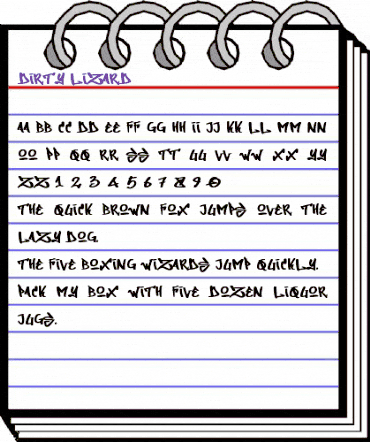 DIRTY LIZARD
AA BB CC DD EE FF GG HH II JJ KK LL MM NN
OO PP QQ RR SS TT UU VV WW XX YY
ZZ 1 2 3 4 5 6 7 8 9 0
THE QUICK BROWN FOX JUMPS OVER THE
LAZY DOG.
THE FIVE BOXING WIZARDS JUMP QUICKLY.
PACK MY BOX WITH FIVE DOZEN LIQUOR
JUGS.